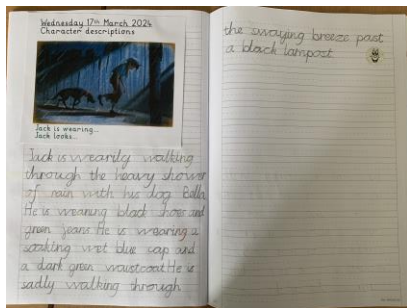 Wednesday 17th March 2024
Character descriptions
Jack is wearing...
Jack looks...
Jack is wearily walking
through the heavy shower
of rain with his dog Bella
He is wearing black shoes and
green jeans He is wearing a
soaking wet blue cap and
a dark green waistcoat He is
sadly walking through
the swaying breeze past
a black lampost